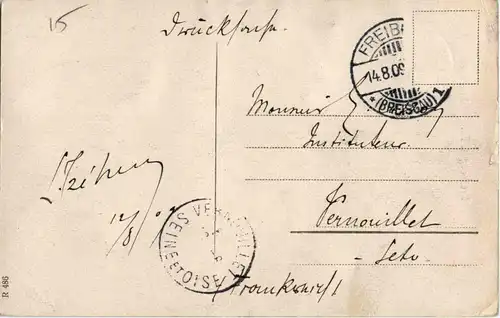 15
Drucksache.
FREIB
14.8.09
* (BREISGAU) 1
Monsieur
Instituteur.
Vernouillet
Frankreich
12/8 09
VERNOUILLET
SEINE ET OISE
R 486